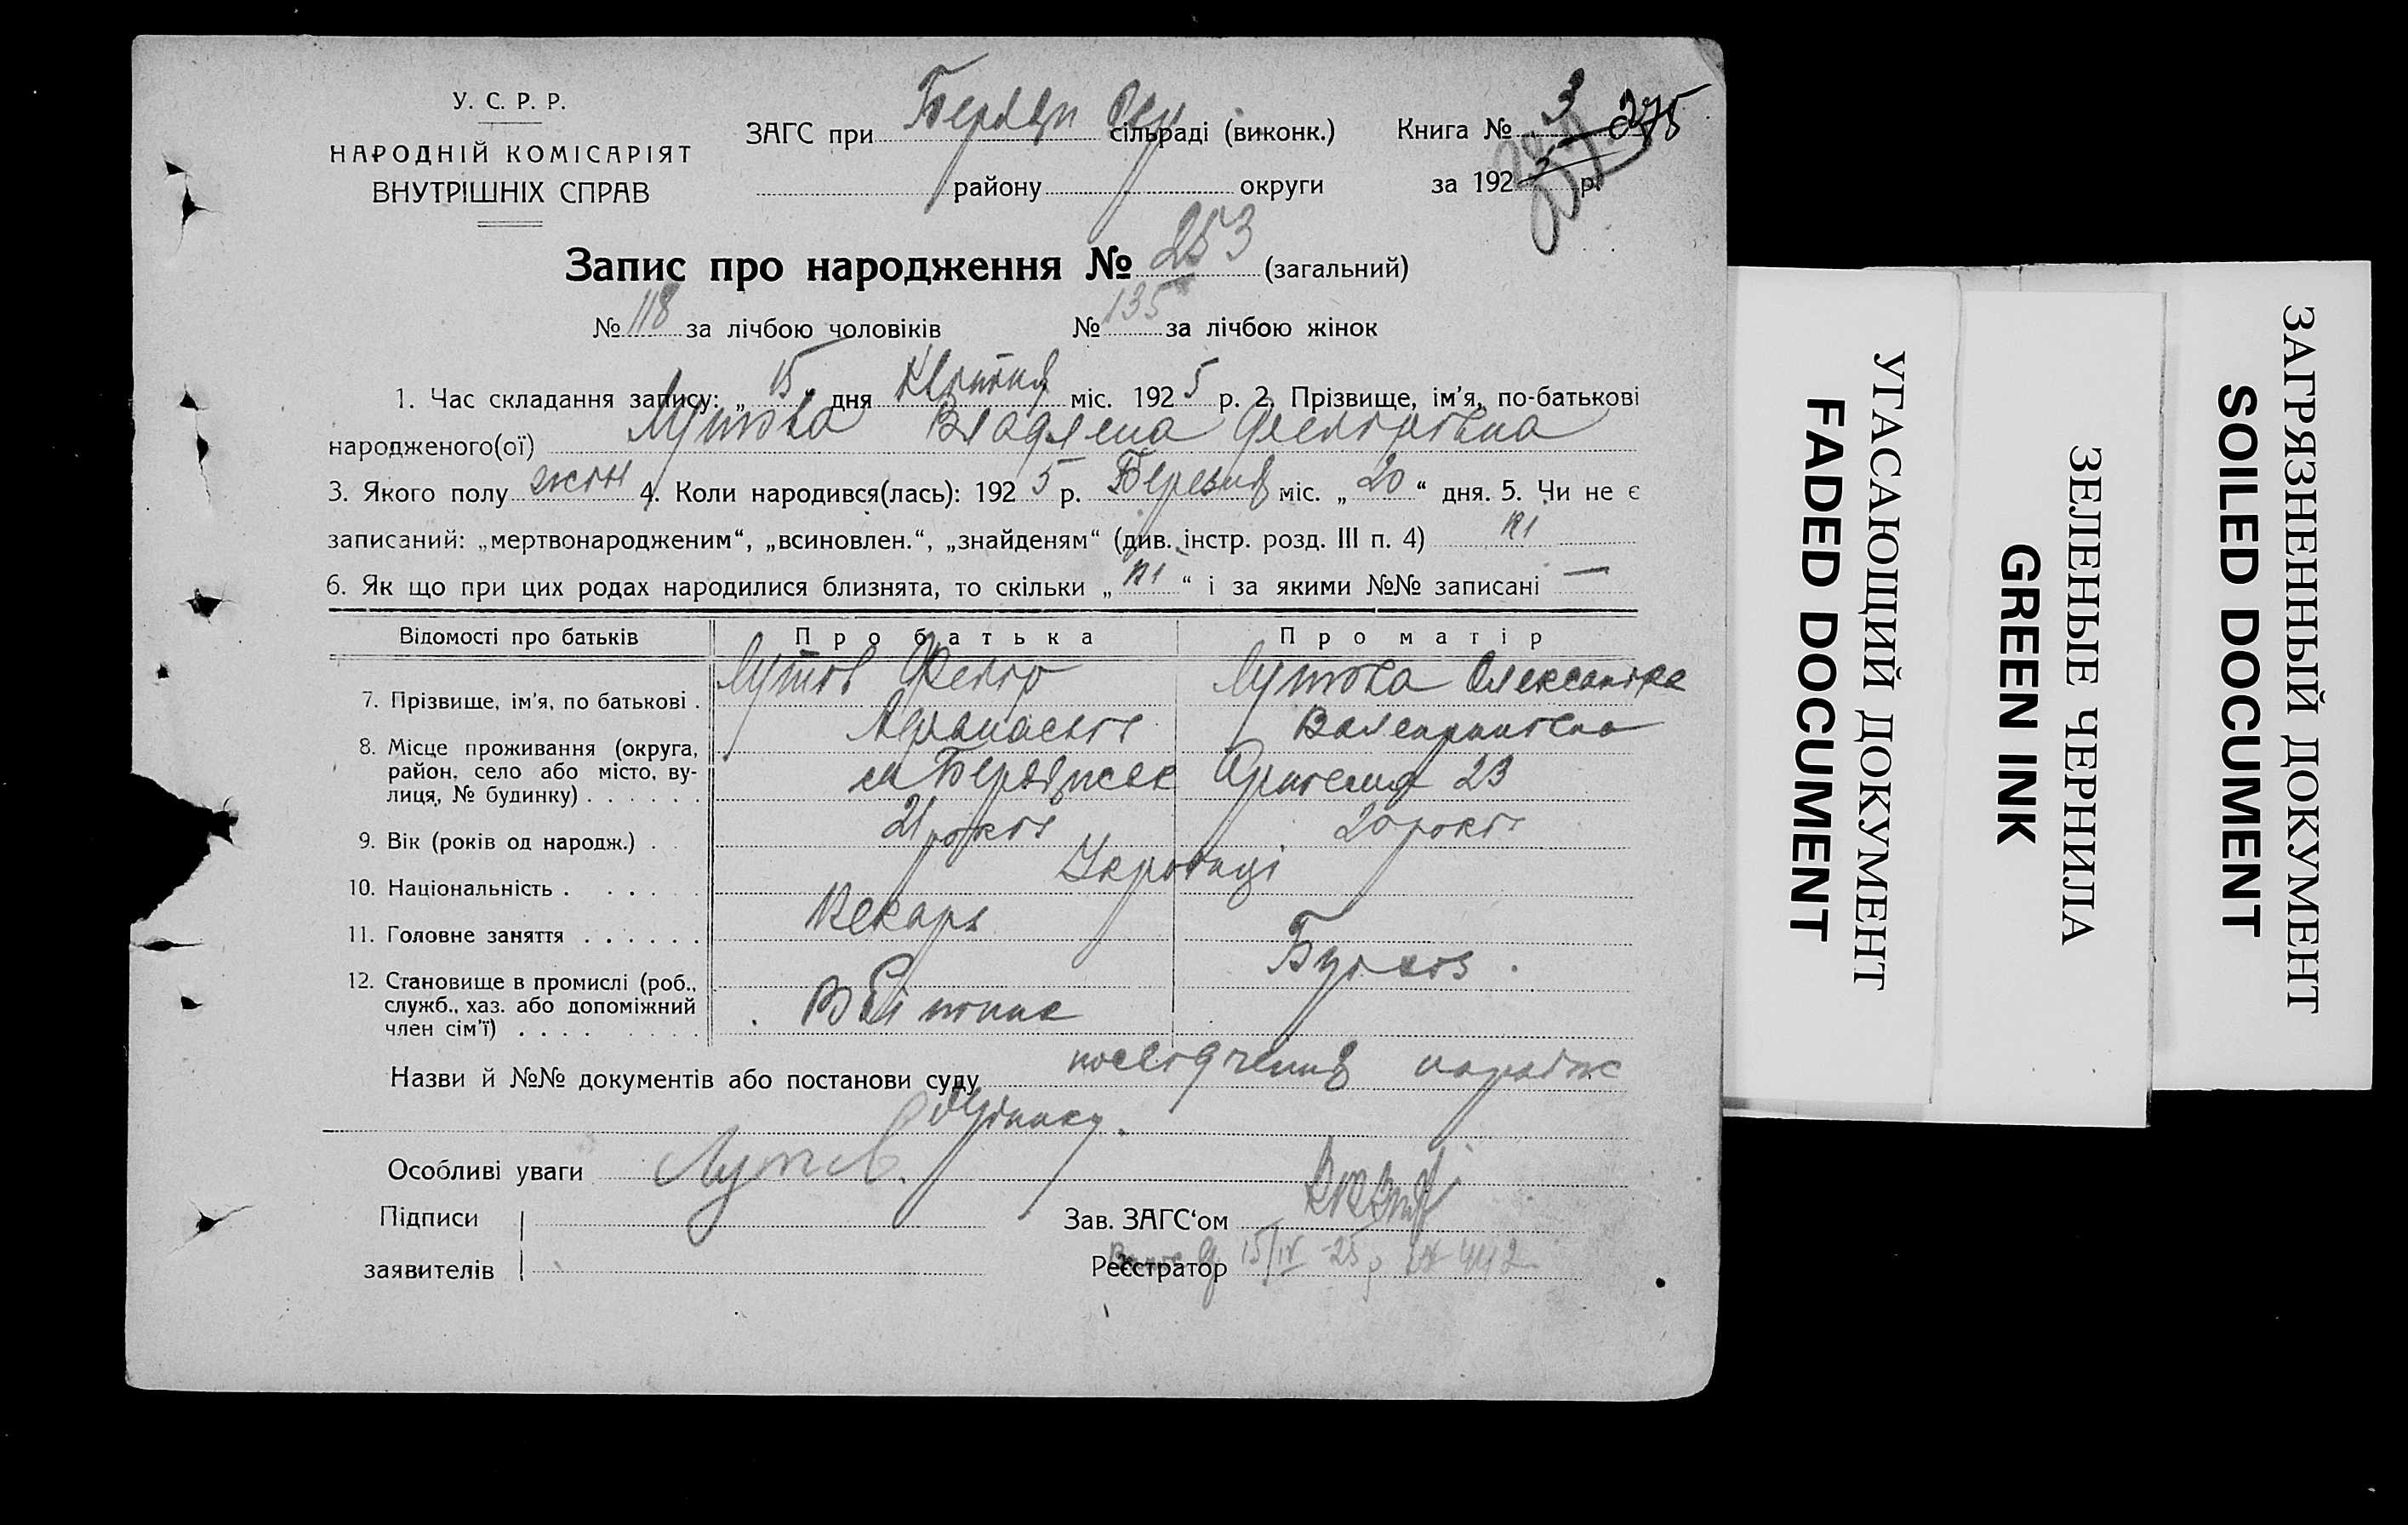 У. С. Р. Р.
НАРОДНІЙ КОМІСАРІЯТ
ВНУТРІШНІХ СПРАВ
ЗАГС при сільраді (виконк.)
району округи
Книга № 3 275
за 192 р.
Запис про народження № 253 (загальний)
№ 118 за лічбою чоловіків № 135 за лічбою жінок
1. Час складання запису: „ 15 „ дня Квітня міс. 192 5 р. 2. Прізвище, ім'я, по-батькові
народженого(ої) Лутова Владлена Федорівна
3. Якого полу жін 4. Коли народився(лась): 192 5 р. Березня міс. „ 20 “ дня. 5. Чи не є
записаний: „мертвонародженим“, „всиновлен.“, „знайденям“ (див. інстр. розд. III п. 4) ні
6. Як що при цих родах народилися близнята, то скільки „ ні “ і за якими №№ записані —
Відомості про батьків Про батька Про матір
7. Прізвище, ім'я, по батькові . Лутов Федір Лутова Олександра
Афанасієв Валеріянівна
8. Місце проживання (округа,
район, село або місто, ву-
лиця, № будинку) . . . . . . 23
9. Вік (років од народж.) . 21 років 20 років
10. Національність . . . . . Українці
11. Головне заняття . . . . . . Пекарь
12. Становище в промислі (роб.,
служб., хаз. або допоміжний
член сім'ї) . . . . . . . . .
Назви й №№ документів або постанови суду посвідчення народж
будинку.
Особливі уваги Лутов.
Підписи
заявителів
Зав. ЗАГС‘ом
Реєстратор 15/IV -25 р
ЗАГРЯЗНЕННЫЙ ДОКУМЕНТ
SOILED DOCUMENT
ЗЕЛЕНЫЕ ЧЕРНИЛА
GREEN INK
УГАСАЮЩИЙ ДОКУМЕНТ
FADED DOCUMENT